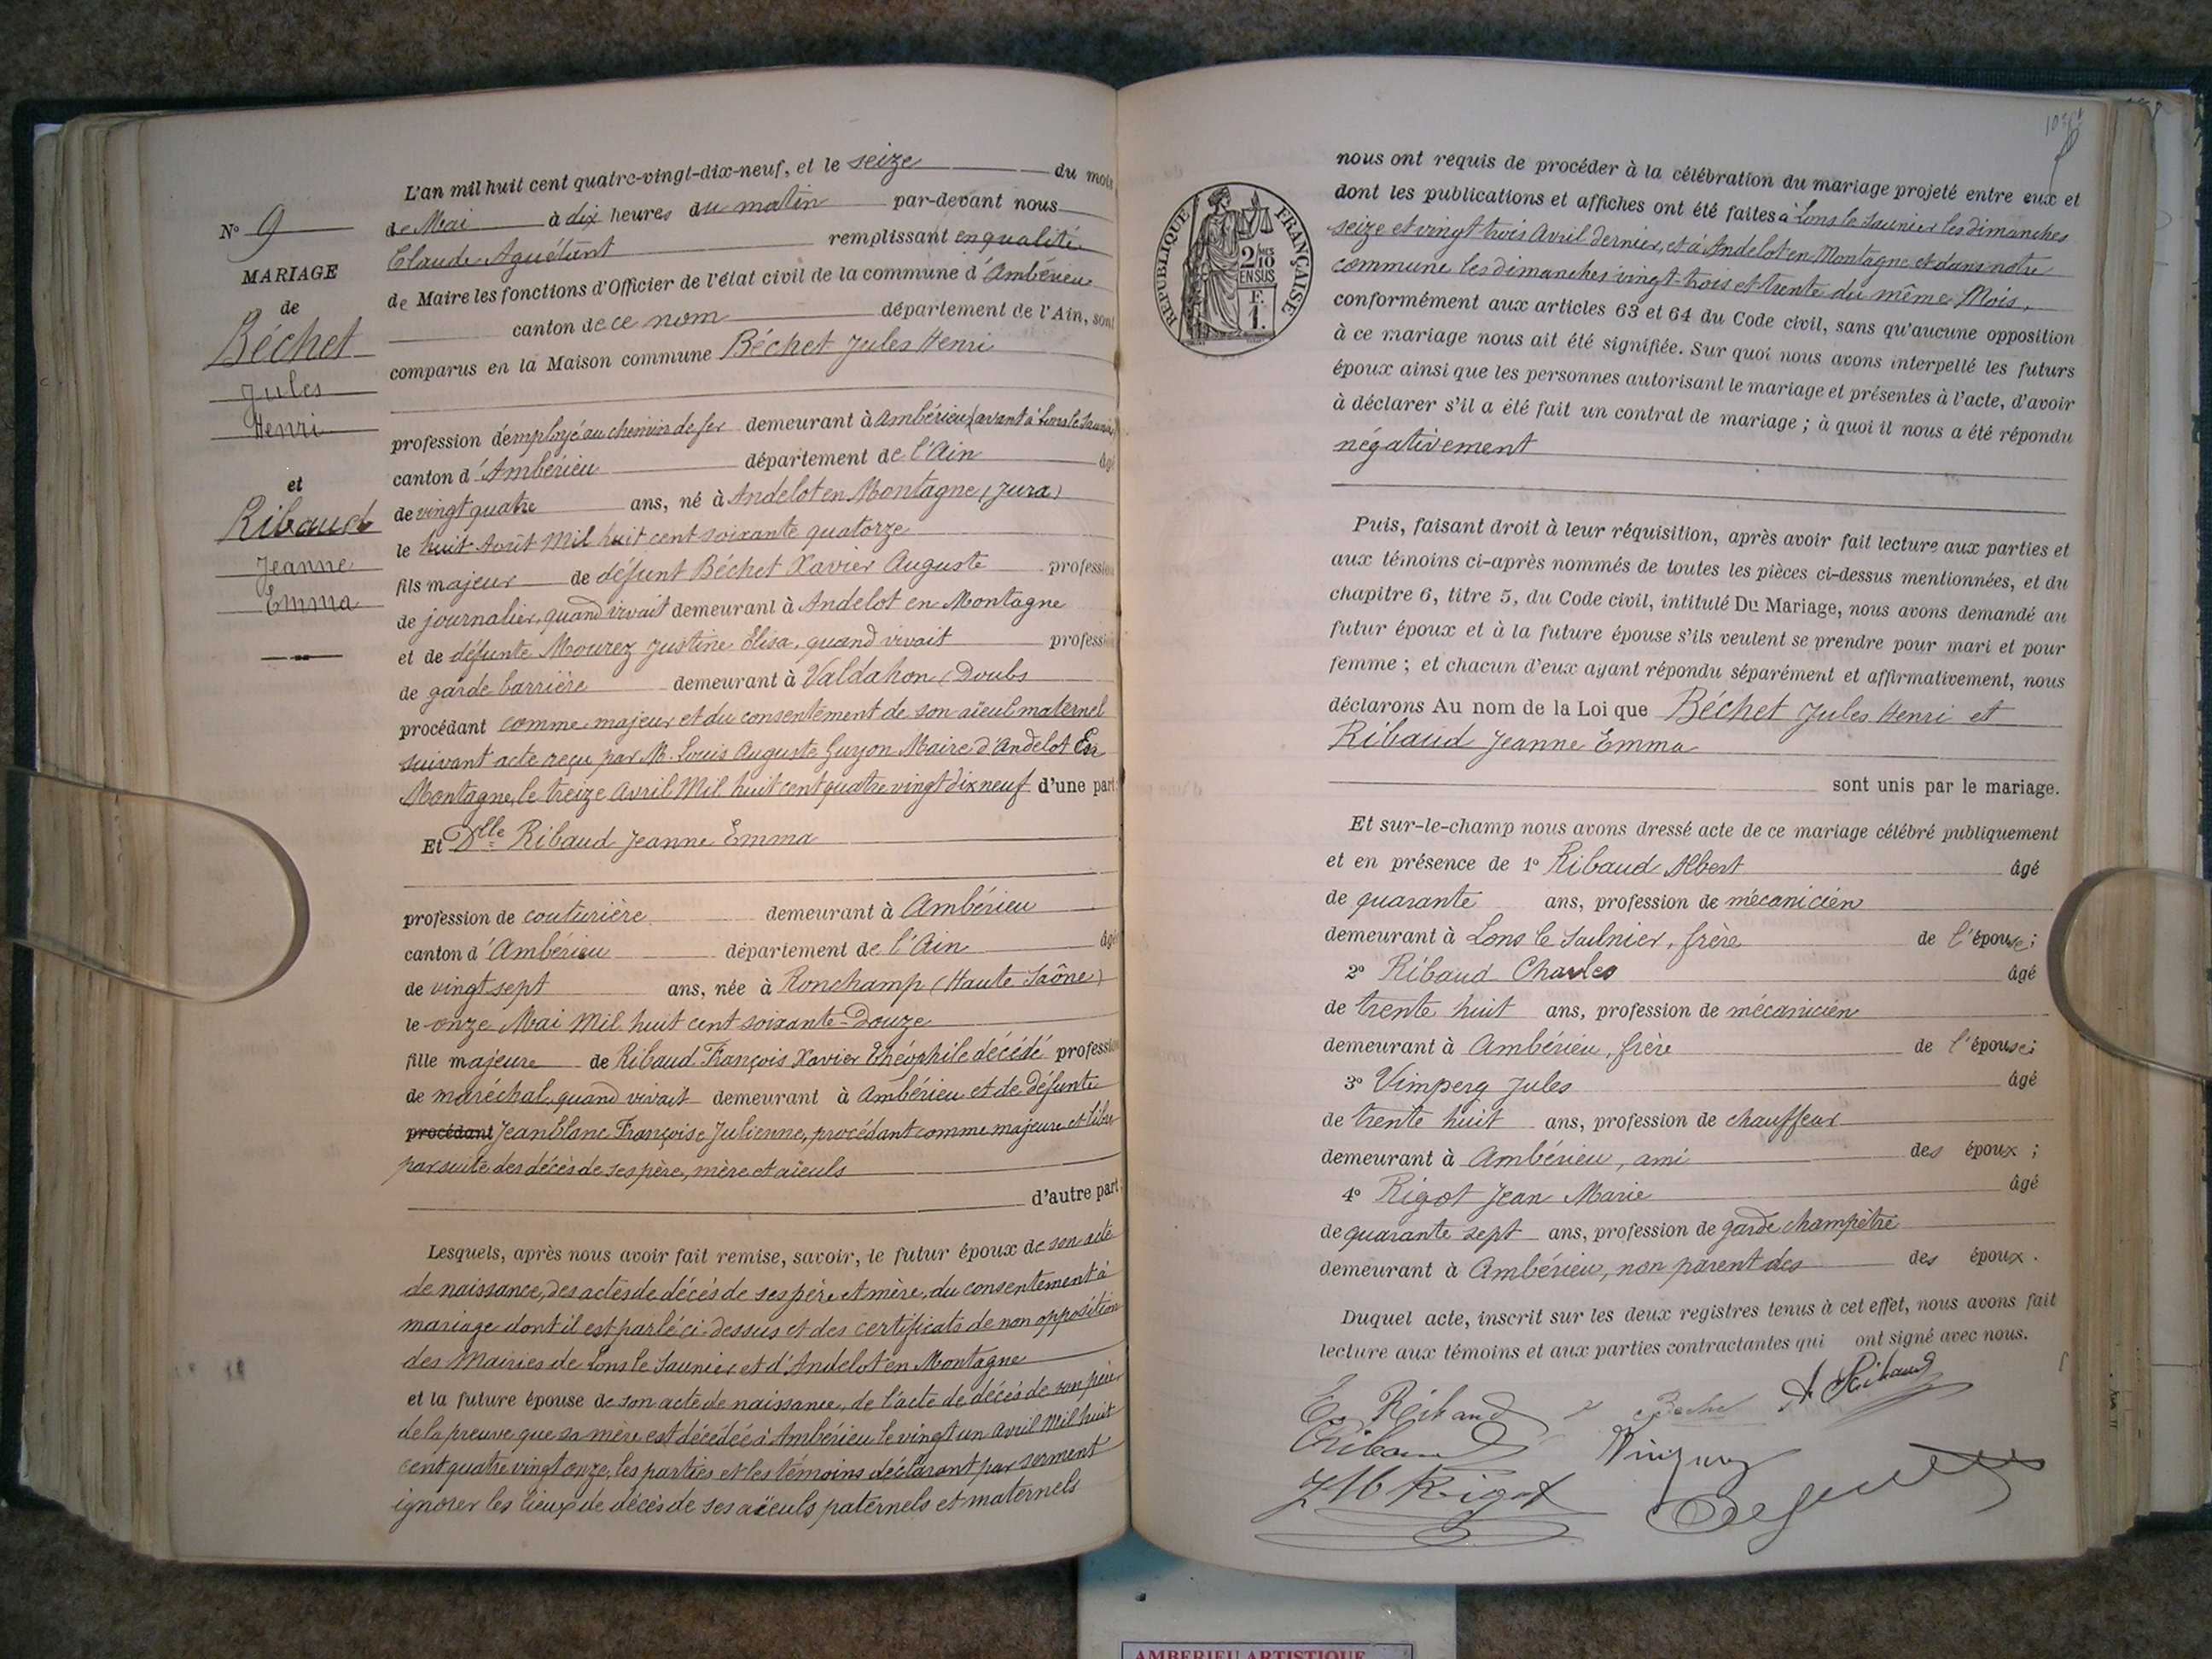 N° 9
MARIAGE
de
Béchet
Jules
Henri
et
Ribaud
Jeanne
Emma
L'an mil huit cent quatre-vingt-dix-neuf, et le seize du mois
de Mai à dix heures du matin par-devant nous
Claude Aguétant remplissant en qualité
de Maire les fonctions d'Officier de l'état civil de la commune d'Ambérieu
canton de ce nom département de l'Ain, sont
comparus en la Maison commune Béchet Jules Henri
profession d'employé au chemin de fer demeurant à Ambérieu (avant à Lons le Saunier
canton d'Ambérieu département de l'Ain âgé
de vingt quatre ans, né à Andelot en Montagne (Jura)
le huit Août Mil huit cent soixante quatorze
fils majeur de défunt Béchet Xavier Auguste profession
de journalier, quand vivait demeurant à Andelot en Montagne
et de défunte Mourez Justine Elisa, quand vivait profession
de garde barrière demeurant à Valdahon (Doubs
procédant comme majeur et du consentement de son aïeul maternel
suivant acte reçu par M. Louis Auguste Guyon Maire d'Andelot En
Montagne, le treize Avril Mil huit cent quatre vingt dix neuf d'une part
Et Dlle Ribaud Jeanne Emma
profession de couturière demeurant à Ambérieu
canton d'Ambérieu département de l'Ain âgée
de vingt sept ans, née à Ronchamp (Haute Saône)
le onze Mai Mil huit cent soixante-Douze
fille majeure de Ribaud François Xavier Théophile décédé profession
de maréchal, quand vivait demeurant à Ambérieu et de défunte
procédant Jeanblanc Françoise Julienne, procédant comme majeure et libre
par suite des décès de ses père, mère et aïeuls
d'autre part
Lesquels, après nous avoir fait remise, savoir, le futur époux de son acte
de naissance, des actes de décès de ses père et mère, du consentement à
mariage dont il est parlé ci-dessus et des certificats de non opposition
des Mairies de Lons le Saunier et d'Andelot en Montagne
et la future épouse de son acte de naissance, de l'acte de décès de son père
de la preuve que sa mère est décédée à Ambérieu le vingt un avril Mil huit
cent quatre vingt onze, les parties et les témoins déclarant par serment
ignorer les lieux de décès de ses aïeuls paternels et maternels
RÉPUBLIQUE FRANÇAISE
2/10
EN SUS
F.
1.
nous ont requis de procéder à la célébration du mariage projeté entre eux et
dont les publications et affiches ont été faites à Lons le Saunier les dimanches
seize et vingt trois Avril dernier, et à Andelot en Montagne et dans notre
commune les dimanches vingt-trois et trente du même Mois,
conformément aux articles 63 et 64 du Code civil, sans qu'aucune opposition
à ce mariage nous ait été signifiée. Sur quoi nous avons interpellé les futurs
époux ainsi que les personnes autorisant le mariage et présentes à l'acte, d'avoir
à déclarer s'il a été fait un contrat de mariage ; à quoi il nous a été répondu
négativement
Puis, faisant droit à leur réquisition, après avoir fait lecture aux parties et
aux témoins ci-après nommés de toutes les pièces ci-dessus mentionnées, et du
chapitre 6, titre 5, du Code civil, intitulé Du Mariage, nous avons demandé au
futur époux et à la future épouse s'ils veulent se prendre pour mari et pour
femme ; et chacun d'eux ayant répondu séparément et affirmativement, nous
déclarons Au nom de la Loi que Béchet Jules Henri et
Ribaud Jeanne Emma
sont unis par le mariage.
Et sur-le-champ nous avons dressé acte de ce mariage célébré publiquement
et en présence de 1° Ribaud Albert âgé
de quarante ans, profession de mécanicien
demeurant à Lons le Saulnier, frère de l'épouse;
2° Ribaud Charles âgé
de trente huit ans, profession de mécanicien
demeurant à Ambérieu, frère de l'épouse;
3° Vimperg Jules âgé
de trente huit ans, profession de chauffeur
demeurant à Ambérieu, ami des époux ;
4° Rigot Jean Marie âgé
de quarante sept ans, profession de garde champêtre
demeurant à Ambérieu, non parent des des époux.
Duquel acte, inscrit sur les deux registres tenus à cet effet, nous avons fait
lecture aux témoins et aux parties contractantes qui ont signé avec nous.
E. Ribaud A Ribaud
JM Rigot
AMBERIEU ARTISTIQUE